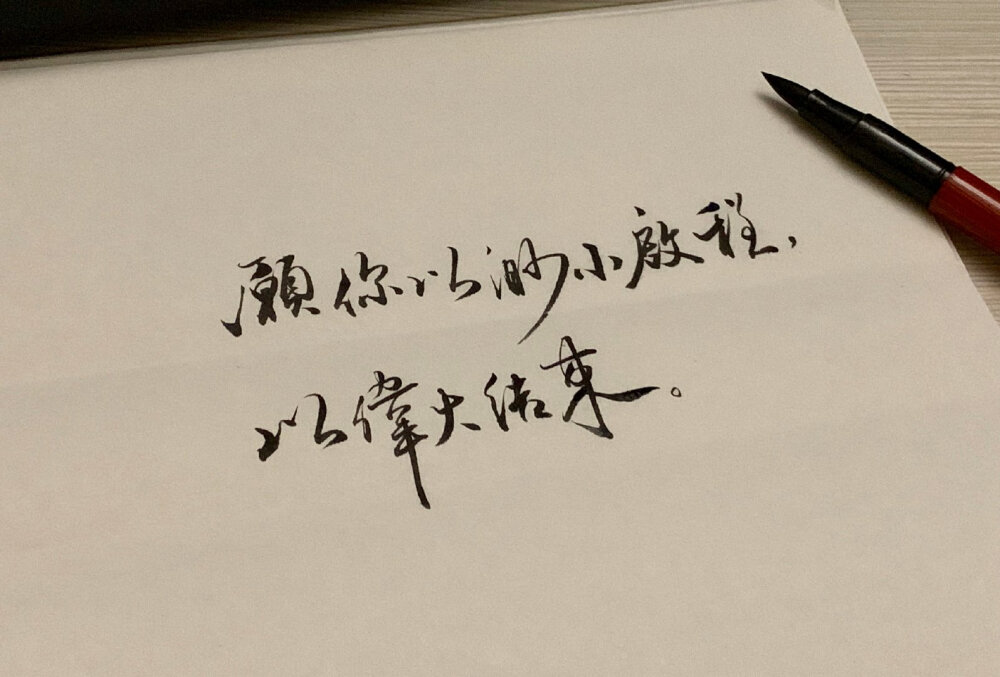 願你以渺小啟程，
以偉大結束。